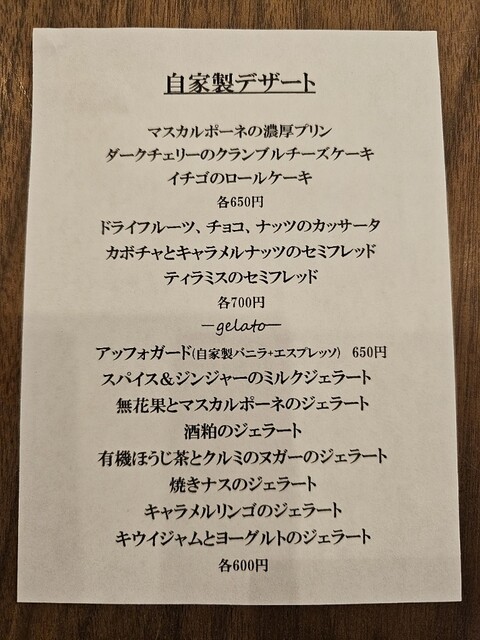 自家製デザート
マスカルポーネの濃厚プリン
ダークチェリーのクランブルチーズケーキ
イチゴのロールケーキ
各650円
ドライフルーツ、チョコ、ナッツのカッサータ
カボチャとキャラメルナッツのセミフレッド
ティラミスのセミフレッド
各700円
―gelato―
アッフォガード(自家製バニラ+エスプレッソ) 650円
スパイス＆ジンジャーのミルクジェラート
無花果とマスカルポーネのジェラート
酒粕のジェラート
有機ほうじ茶とクルミのヌガーのジェラート
焼きナスのジェラート
キャラメルリンゴのジェラート
キウイジャムとヨーグルトのジェラート
各600円